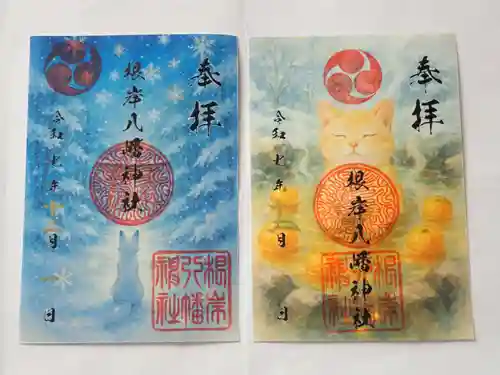 奉拝
根岸八幡神社
令和七年十二月 日
根岸
八幡
神社
奉拝
根岸八幡神社
令和七年十二月 日
根岸
八幡
神社